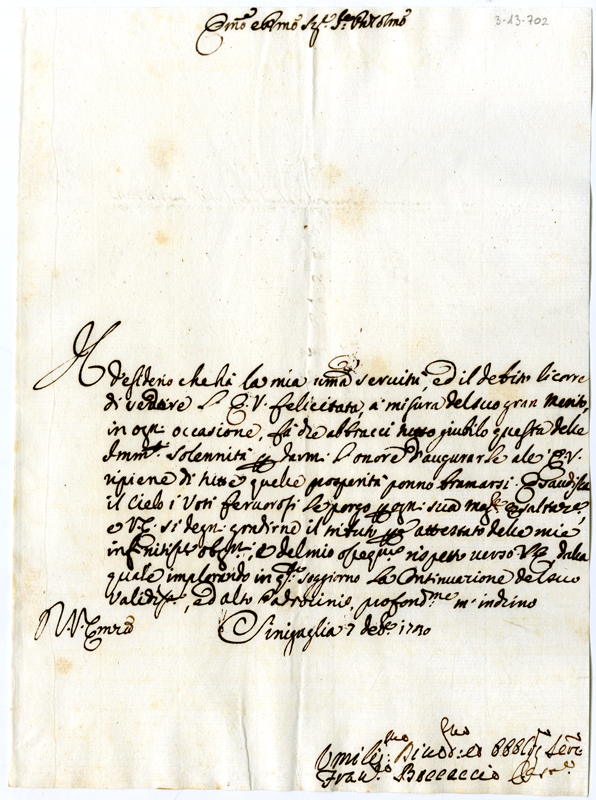 3-13-702
Emo e Rmo Sigr
Il desiderio che hà la mia uma servitù, ed il debito li corre
di vedere l'E.V. felicitata, a misura del suo gran merito,
in ogni occasione, fà che abbracci tutto giubilo questa della
Immte Solennità per darmi l'onore d'augurarle all'E.V.
ripiene di tutte quelle prosperità ponno bramarsi. Esaudisca
il Cielo i Voti fervorosi le porgo per ogni sua magr esaltazne,
e V.E. si degni gradirne il tributo per attestato delle mie
infinitisse obbni, e del mio ossequimo rispetto verso V.E. dalla
quale implorando in qto soggiorno la continuazione del suo
validisso, ed alto Padrocinio, profondme m'inchino
Di V. Emza
Sinigaglia 7 Xbre
Umilismo Divotmo ed Obblgmo Serve
Franco Boccaccio